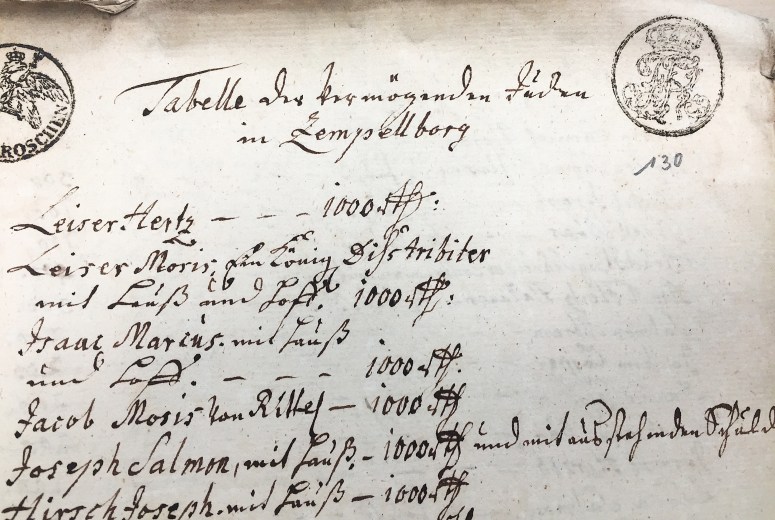 ROSCHEN
Tabelle der Vermögenden Juden
in Zempellborg
130
Leiser Hertz - - - 1000 Rth:
Leiser Moris, ein König Distribiter
mit Hauß und Hoff. 1000 Rth:
Isaac Marcus. mit Hauß
und Hoff. - - - 1000 Rth.
Jacob Moris von Rittel - 1000 Rth
Joseph Salmon, mit Hauß. - 1000 Rth und mit ausstehenden Schuld
Hirsch Joseph. mit Hauß - 1000 Rth